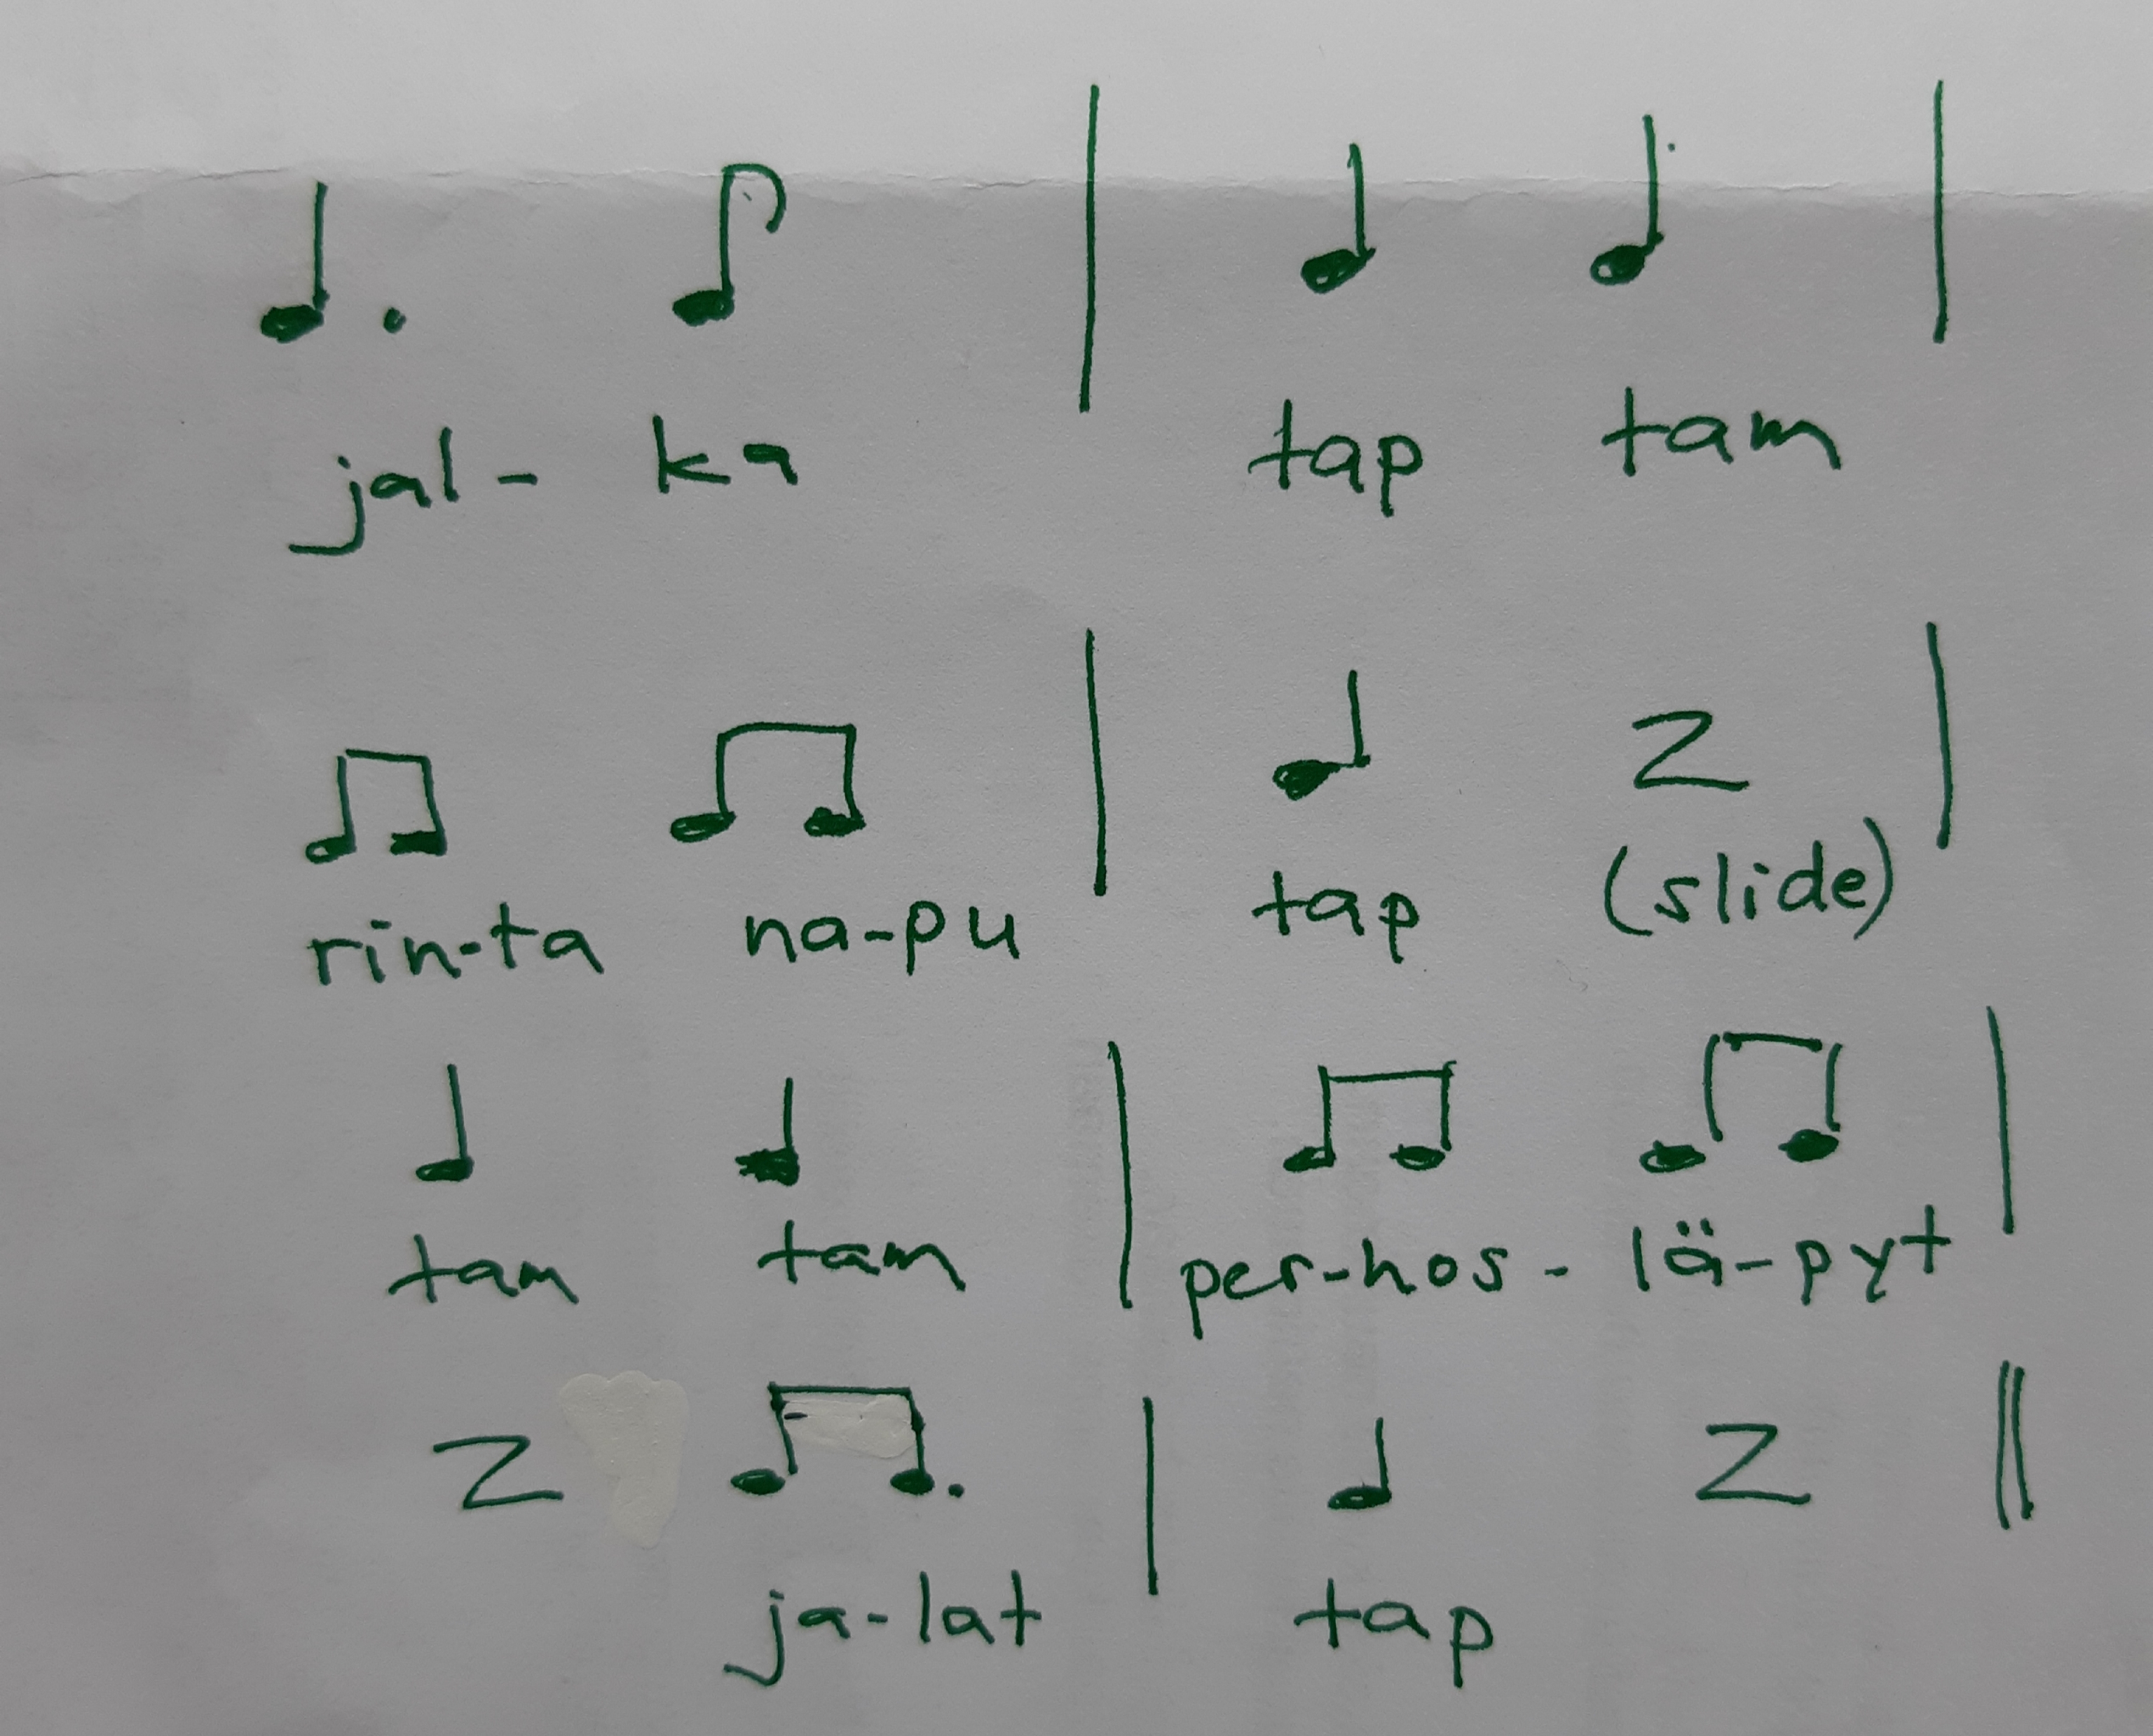 jal- ka tap tam
rin-ta na-pu tap (slide)
tam tam per-hos- lä-pyt
ja-lat tap